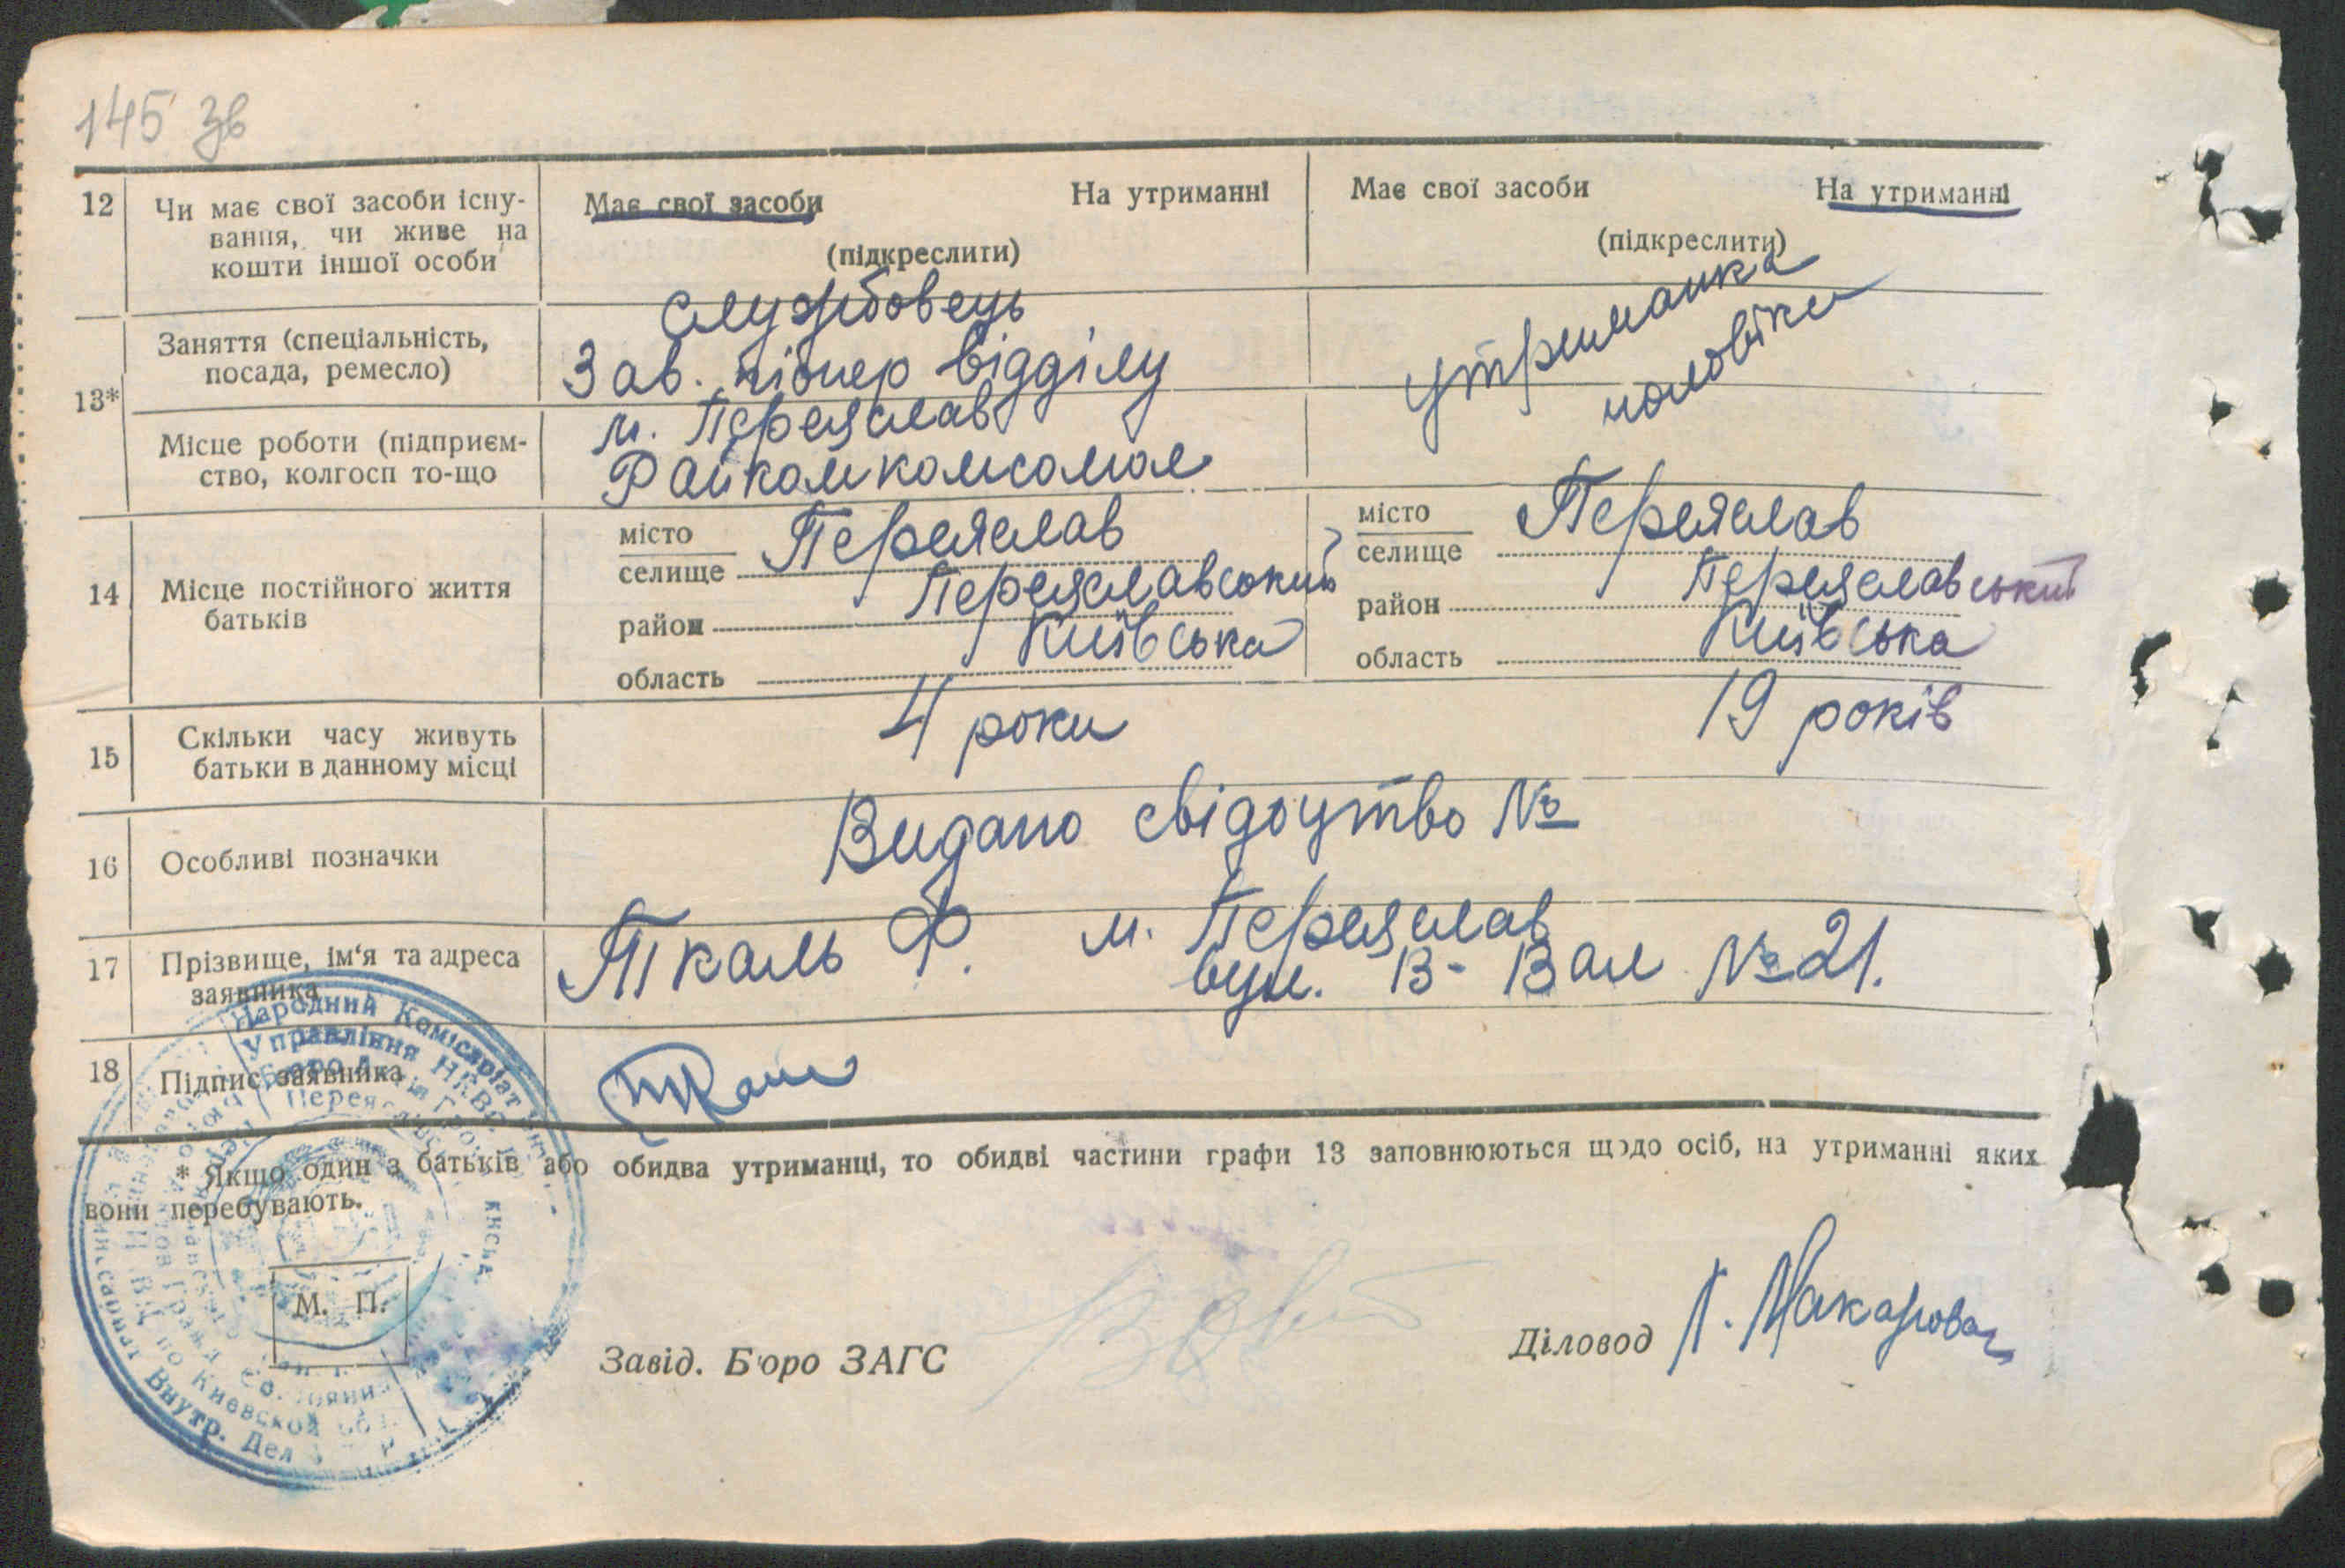 145 зв
12 Чи має свої засоби існу-
вання, чи живе на
кошти іншої особи
Має свої засоби На утриманні
(підкреслити)
Має свої засоби На утриманні
(підкреслити)
13*
Заняття (спеціальність,
посада, ремесло)
службовець
Зав. піонер відділу
утриманка
чоловіка
Місце роботи (підприєм-
ство, колгосп то-що
м. Переяслав
Райкомкомсомол
14 Місце постійного життя
батьків
місто
селище Переяслав
район Переяславський
область Київська
місто
селище Переяслав
район Переяславський
область Київська
15 Скільки часу живуть
батьки в данному місці
4 роки 19 років
16 Особливі позначки
Видано свідоцтво №
17 Прізвище, ім'я та адреса
заявника
Ткаль Ф. м. Переяслав
вул. В-Вал №21.
18 Підпис заявника
* Якщо один з батьків або обидва утриманці, то обидві частини графи 13 заповнюються щодо осіб, на утриманні яких
вони перебувають.
Народний Комісаріат
Управління НКВС
Бюро Актів
Внутр. Дел
по Киевской обл.
М. П.
Завід. Бюро ЗАГС
Діловод Макарова